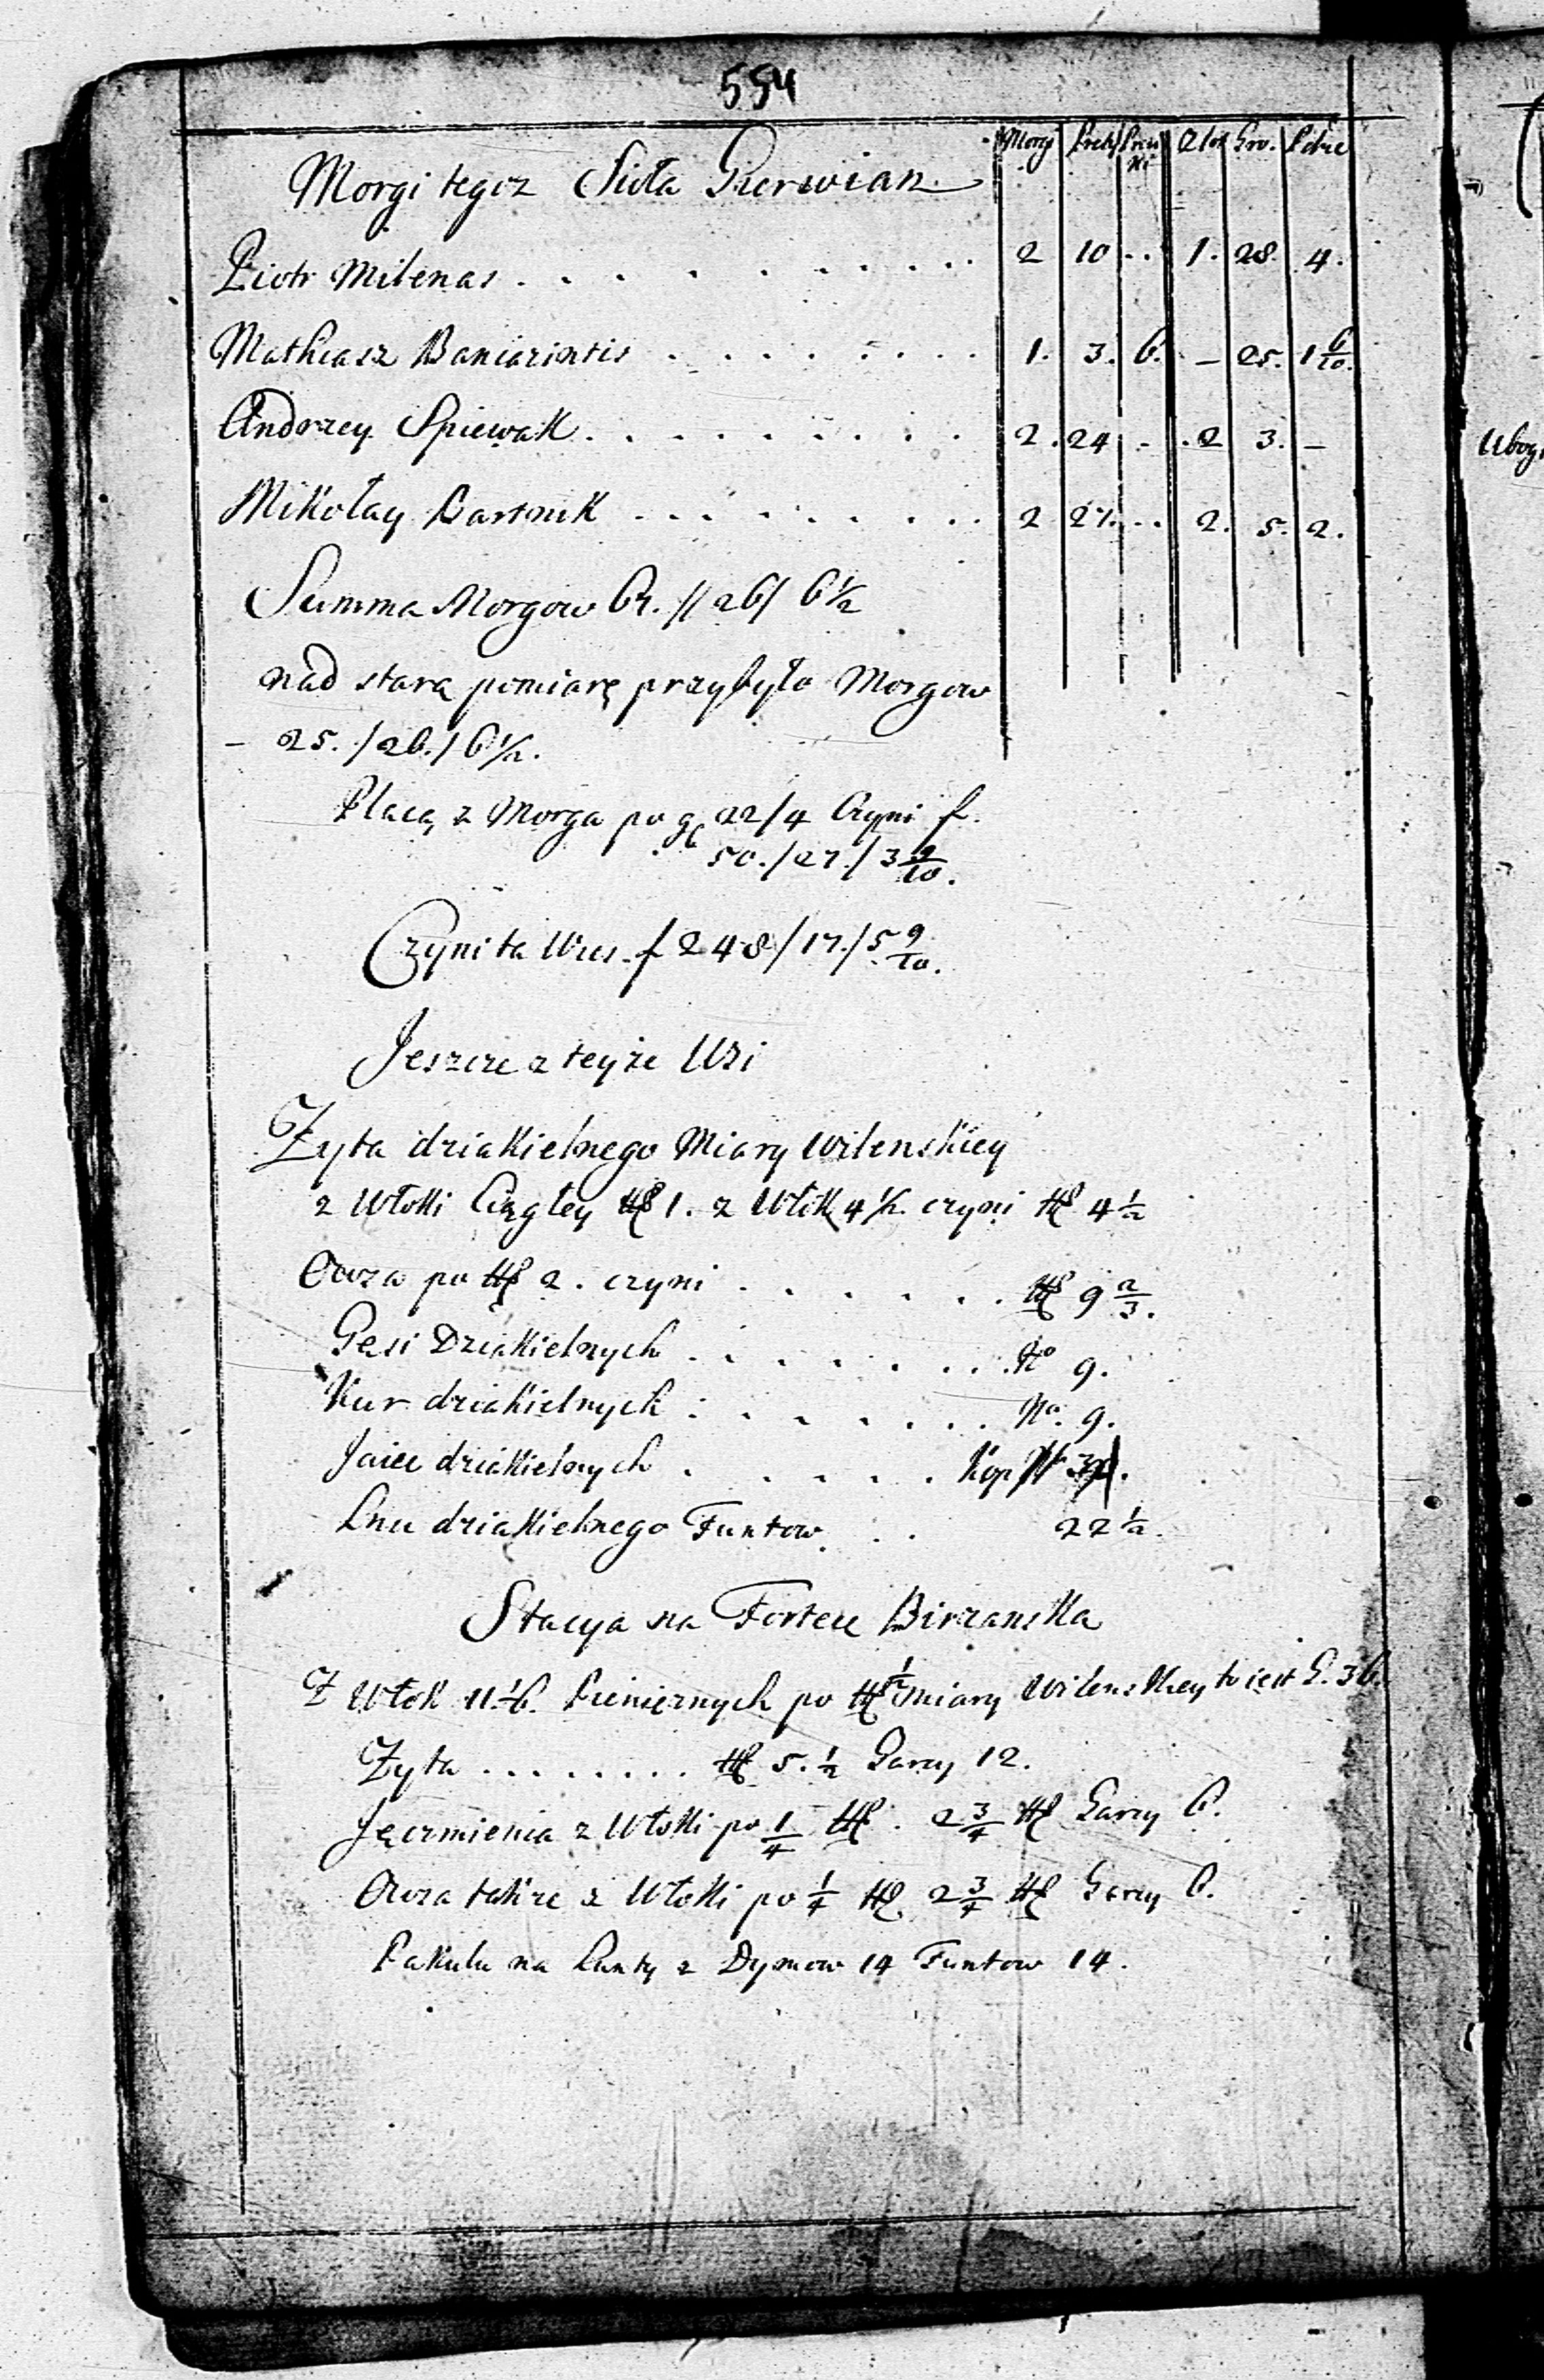 554
Morgi Pręty Pręci Zlot Gro. Pitne
ki
Morgi tegoz Sioła Gierwian
Piotr Milenas . . . . . . . . . . 2 10 . . 1. 28. 4.
Matheasz Baniarintis . . . . . . . . 1. 3. 6. – 25. 1 6/10.
Andrzey Spiewak . . . . . . . . . 2. 24 . . 2 3. –
Mikołay Bartnik . . . . . . . . . 2 27. . . 2. 5. 2.
Summa Morgow 67. // 26/ 6½
nad starą pomiarę przybyło Morgow
– 25. / 26. / 6½.
Płacą z Morga po g 22/4 Czyni f.
50. / 27. / 3 9/10.
Czyni ta Wies. f 248 / 17. / 5 9/10.
Jeszcze z teyże Wsi
Żyta dziakielnego Miary Wilenskiey
z Włoki Ciągley 1. z Włok 4½. czyni 4½
Owsa po 2. czyni . . . . . . 9 2/3.
Gęsi Dziakielnych . . . . . . . . No 9.
Kur dziakielnych . . . . . . . . No. 9.
Jaiec dziakielnych . . . . . Kop
Lnu dziakielnego Funtow. . . 22½.
Stacya na Fortecę Birzanska
Z Włok 11.⅙. Pieniężnych po ½ miary Wilenskiey to iest G. 36.
Żyta . . . . . . . . 5.½ Garcy 12.
Jęczmienia z Włoki po 1/4 . 2 3/4 Garcy 6.
Owsa także z Włoki po 1/4 2 3/4 Garcy 6.
Pakulu na Lunty z Dymow 14 Funtow 14.
Ubog